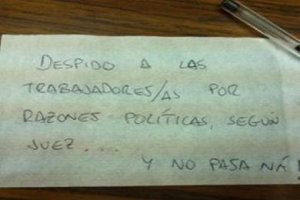 DESPIDO A LAS
TRABAJADORES/AS POR
RAZONES POLÍTICAS, SEGÚN
JUEZ....
Y NO PASA NÁ!